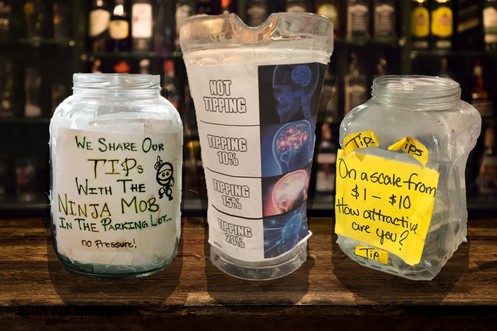 WE SHARE OUR
TIPS
WITH THE
NINJA MOB
IN THE PARKING LOT...
no Pressure!
NOT
TIPPING
TIPPING
10%
TIPPING
15%
TIPPING
20%
Tip
Tips
On a scale from
$1 - $10
How attractive
are you?
Tip